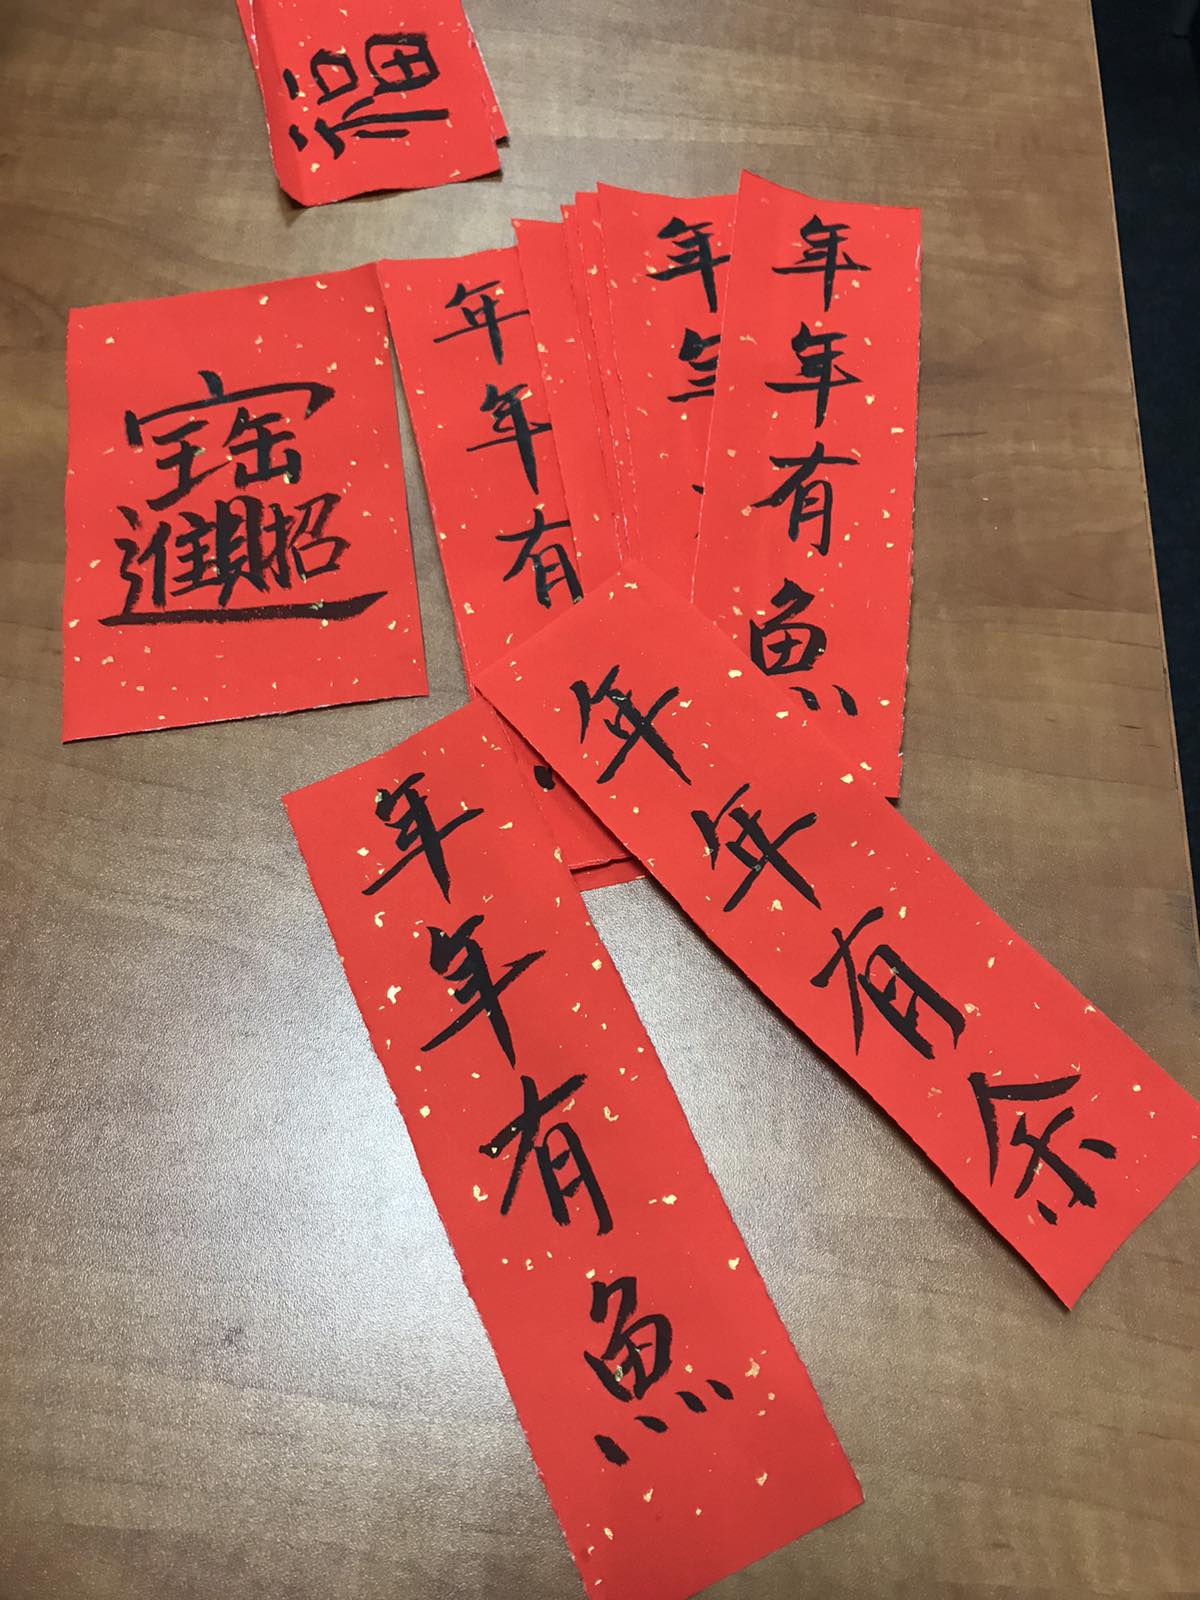 福
招財進寶
年年有
年年
年年有魚
年年有魚
年年有余